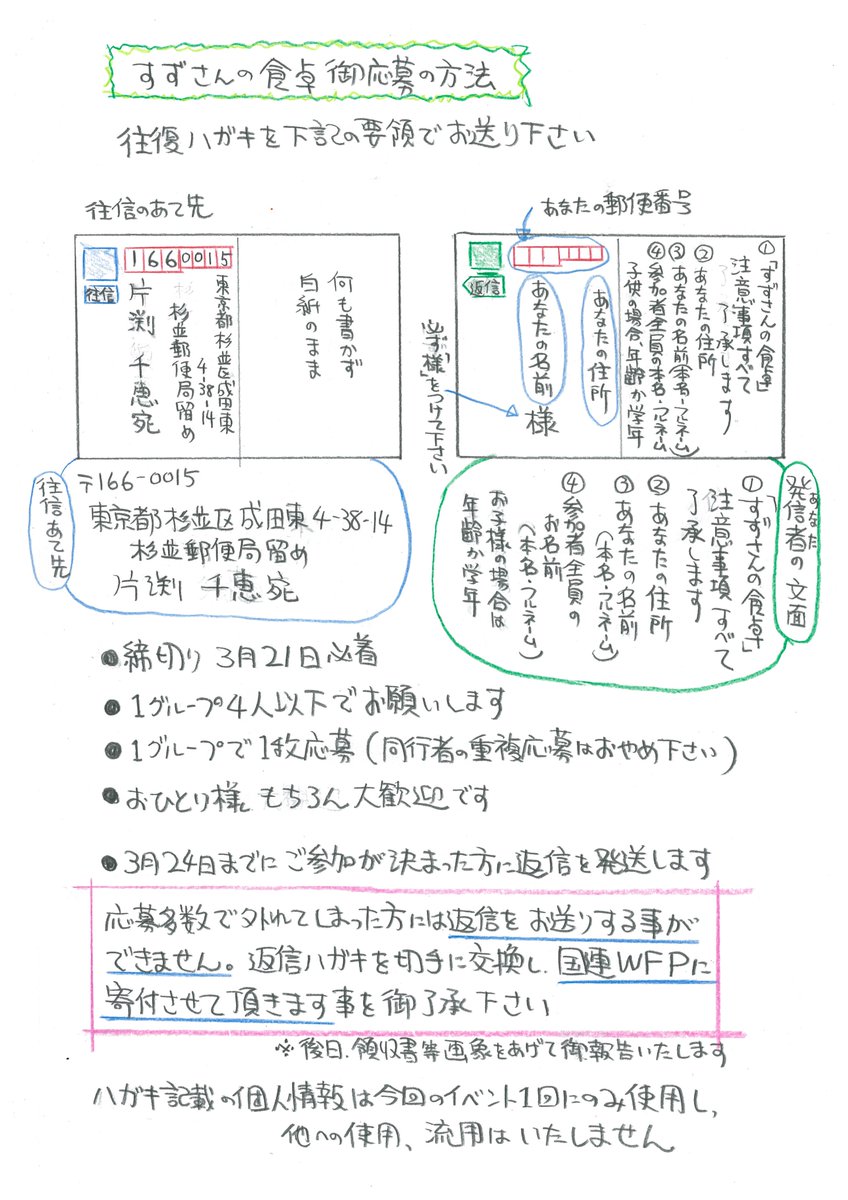 すずさんの食卓 御応募の方法
往復ハガキを下記の要領でお送り下さい
往信のあて先
1660015
往信
東京都杉並区成田東
4-38-14
杉並郵便局留め
片渕 千恵宛
何も書かず
白紙のまま
あなたの郵便番号
返信
あなたの住所
あなたの名前
様
必ず「様」をつけて下さい
①「すずさんの食卓」
注意事項すべて
了承します
②あなたの住所
③あなたの名前(本名・フルネーム)
④参加者全員の本名・フルネーム
子供の場合、年齢か学年
往信あて先
〒166-0015
東京都杉並区成田東4-38-14
杉並郵便局留め
片渕 千恵宛
あなた
発信者の文面
①「すずさんの食卓」
注意事項すべて
了承します
②あなたの住所
③あなたの名前
(本名・フルネーム)
④参加者全員の
お名前
(本名・フルネーム)
お子様の場合は
年齢か学年
●締切り 3月21日必着
●1グループ4人以下でお願いします
●1グループで1枚応募(同行者の重複応募はおやめ下さい)
●おひとり様もちろん大歓迎です
●3月24日までにご参加が決まった方に返信を発送します
応募多数で外れてしまった方には返信をお送りする事が
できません。返信ハガキを切手に交換し、国連WFPに
寄付させて頂きます事を御了承下さい
※後日、領収書等画像をあげて御報告いたします
ハガキ記載の個人情報は今回のイベント1回にのみ使用し、
他への使用、流用はいたしません